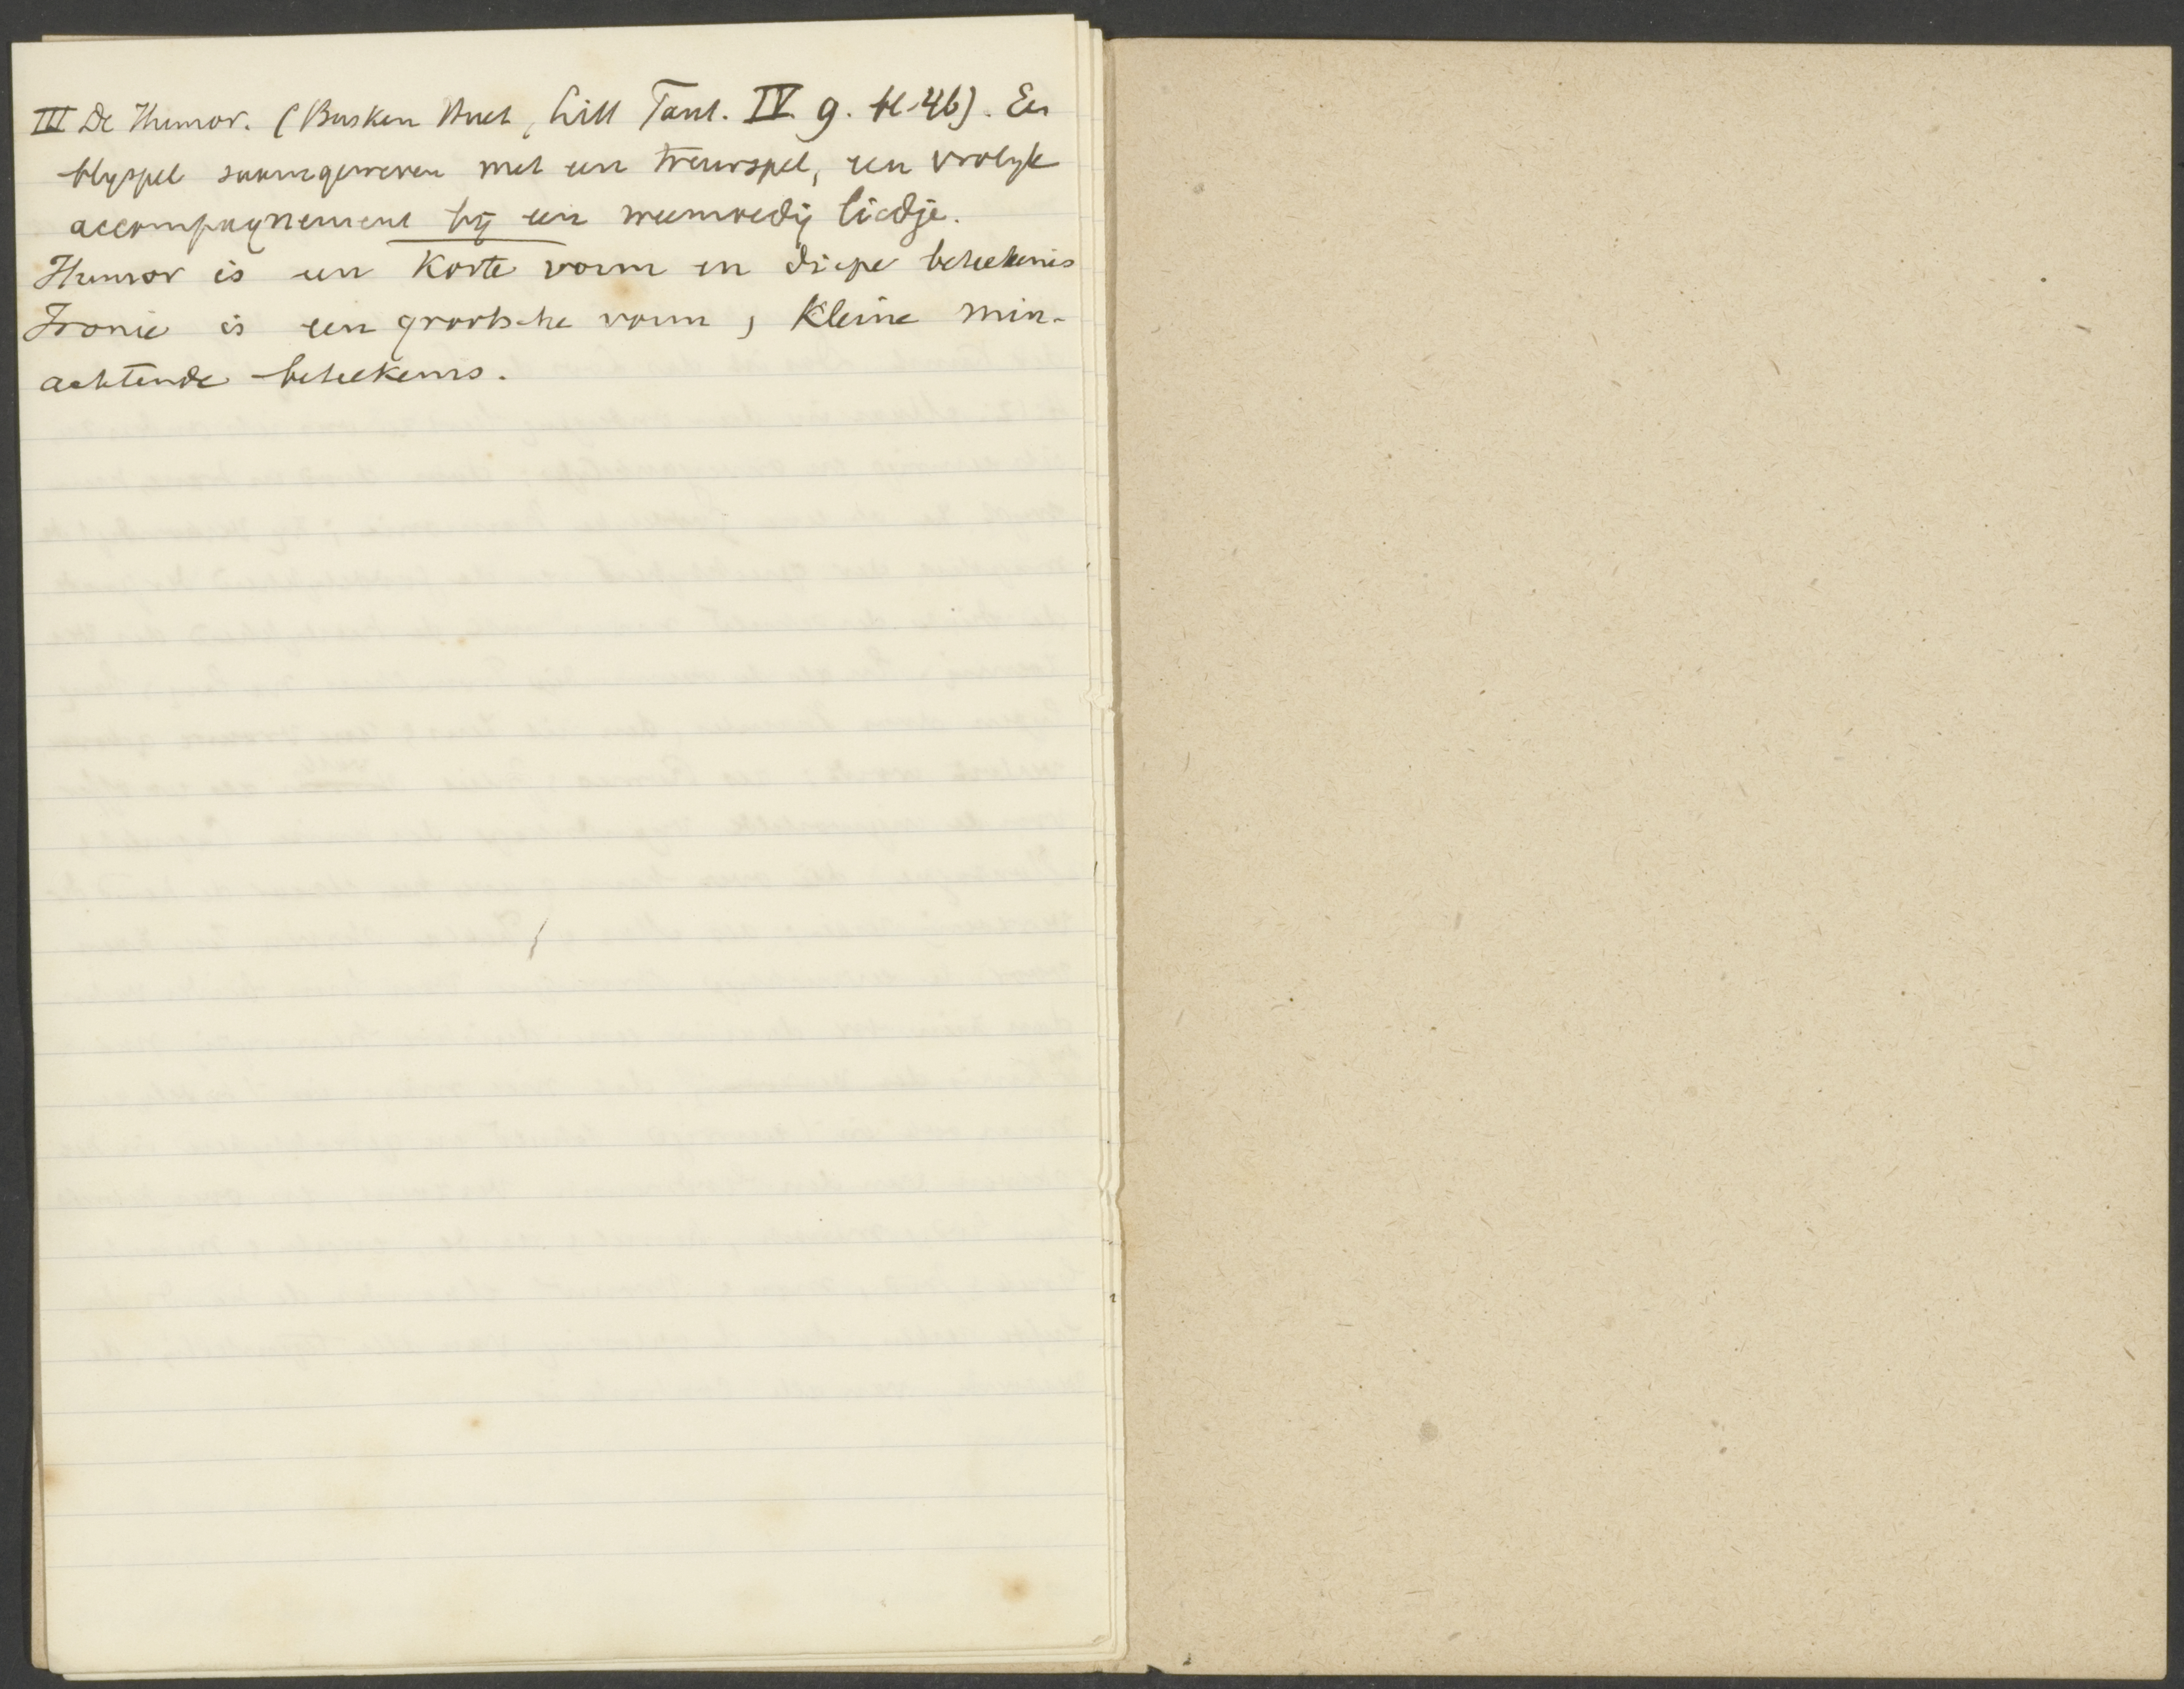 III De Humor. (Busken Huet, Litt Fant. IV. 9. bl. 46). Een
blyspel saamgeweven met een treurspel, een vrolyk
accompagnement bij een weemoedig liedje.
Humor is een korte vorm en diepe beteekenis
Ironie is een grootsche vorm, kleine min-
achtende beteekenis.